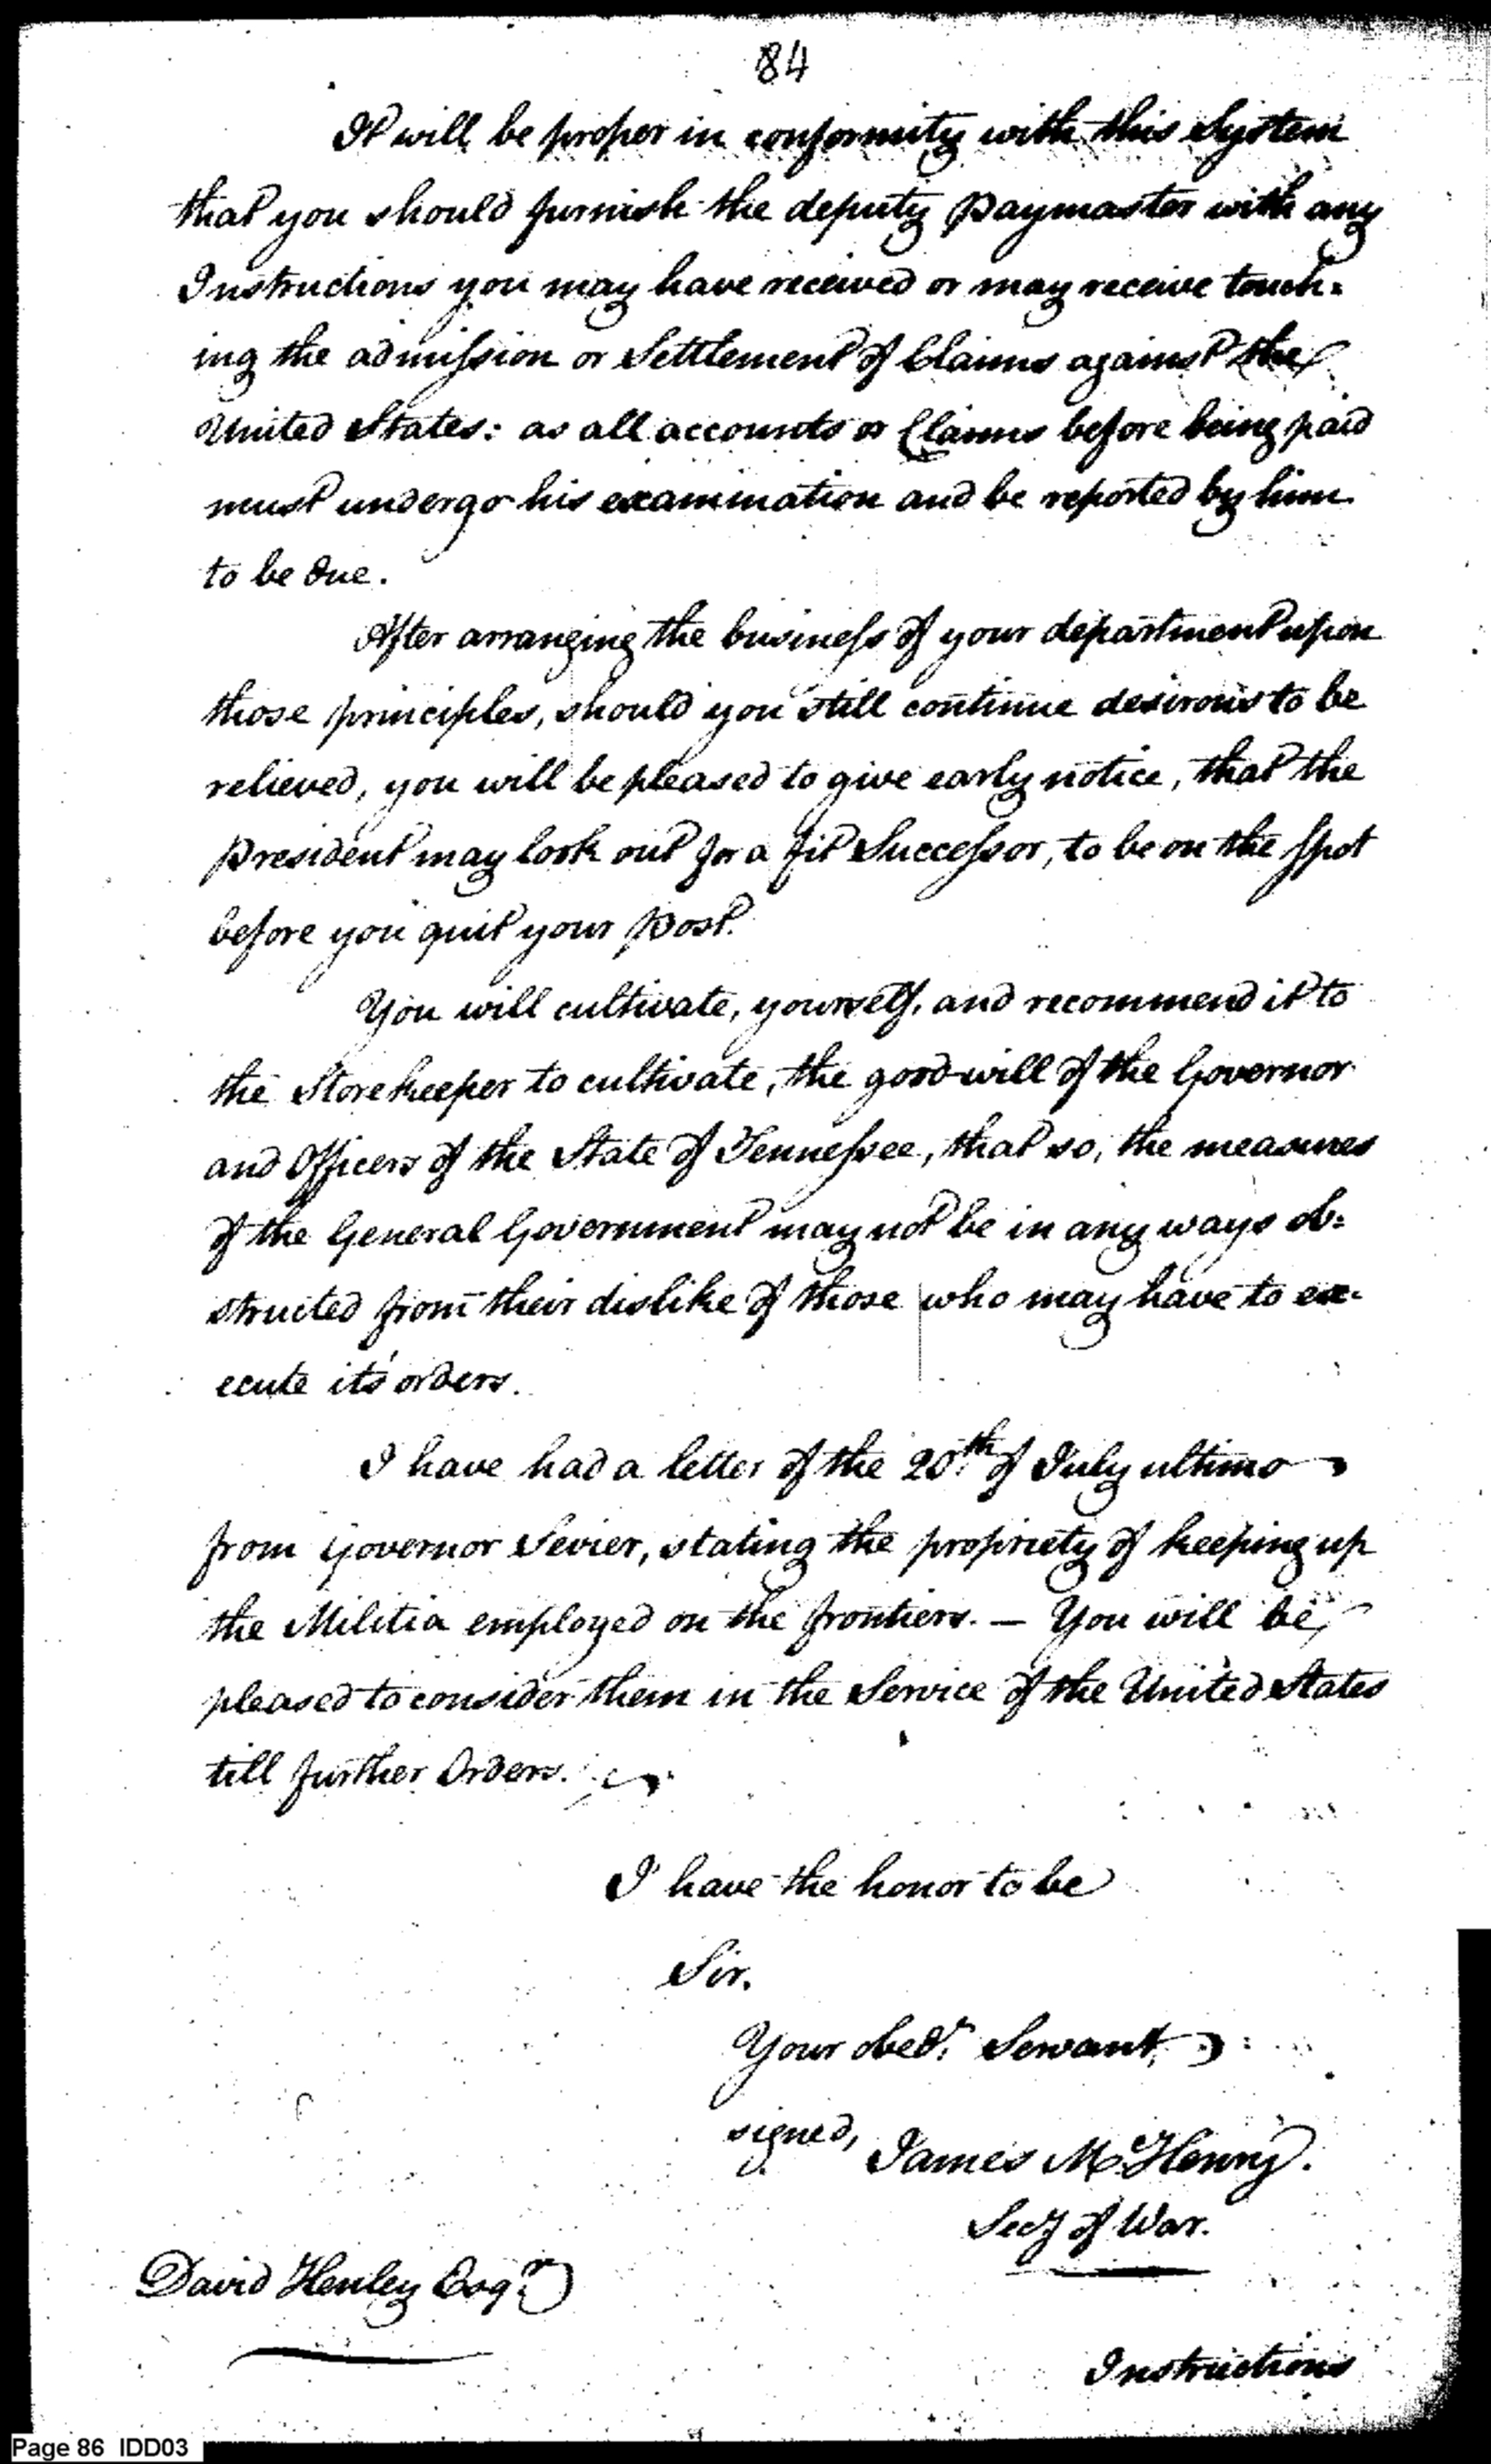 84
It will be proper in conformity with this System
that you should furnish the deputy Paymaster with any
Instructions you may have received or may receive touch=
ing the admission or Settlement of Claims against the
United States: as all accounts or Claims before being paid
must undergo his examination and be reported by him
to be due.
After arranging the business of your department upon
those principles, should you still continue desirous to be
relieved, you will be pleased to give early notice, that the
President may look out for a fit Successor, to be on the spot
before you quit your post.
You will cultivate, yourself, and recommend it to
the Storekeeper to cultivate, the good-will of the Governor
and Officers of the State of Tennessee, that so, the measures
of the General Government may not be in any ways ob=
structed from their dislike of those who may have to ex-
ecute it's orders.
I have had a letter of the 20th of July ultimo
from Governor Sevier, stating the propriety of keeping up
the Militia employed on the frontiers. — You will be
pleased to consider them in the Service of the United States
till further Orders.
I have the honor to be
Sir.
Your obedt. Servant,
signed, James McHenry.
Secy of War.
David Henley Esqr.
Instructions
Page 86 IDD03